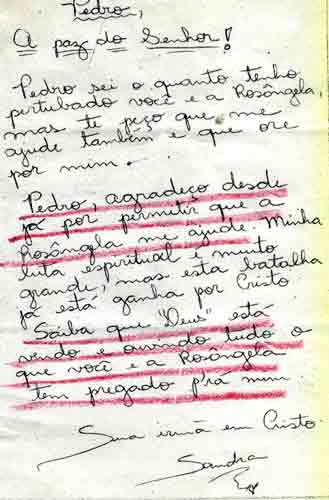 Pedro,
A paz do Senhor!
Pedro sei o quanto tenho
pertubado você e a Rosângela,
mas te peço que me
ajude também e que ore
por mim.
Pedro, agradeço desde
já por permitir que a
Rosângela me ajude. Minha
luta espiritual é muito
grande, mas esta batalha
já está ganha por Cristo
Saiba que "Deus" está
vendo e ouvindo tudo o
que você e a Rosângela
tem pregado p'rá mim.
Sua irmã em Cristo.
Sandra